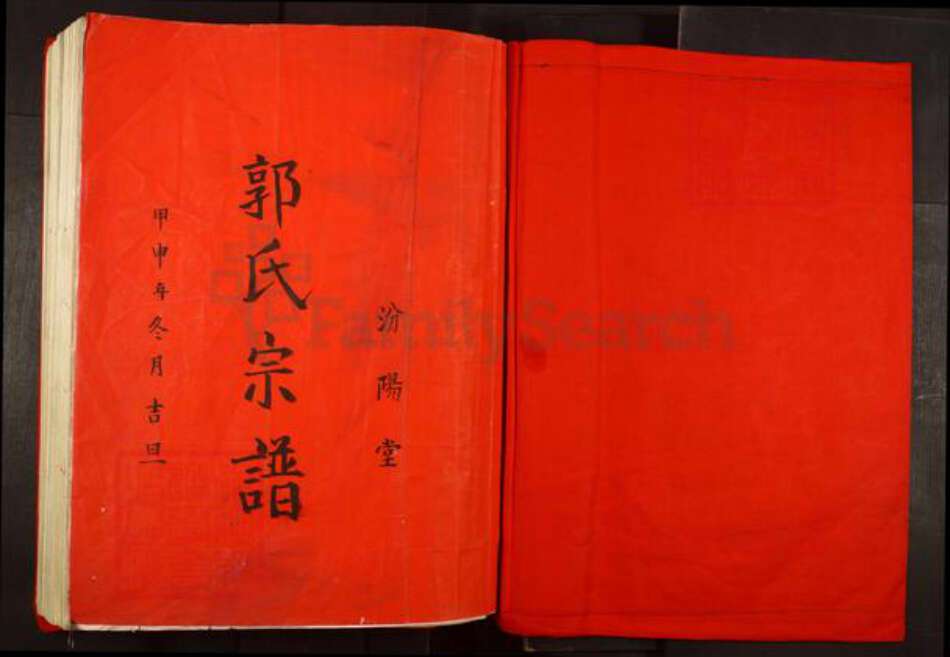 汾陽堂
郭氏宗譜
甲申年冬月吉旦
FamilySearch